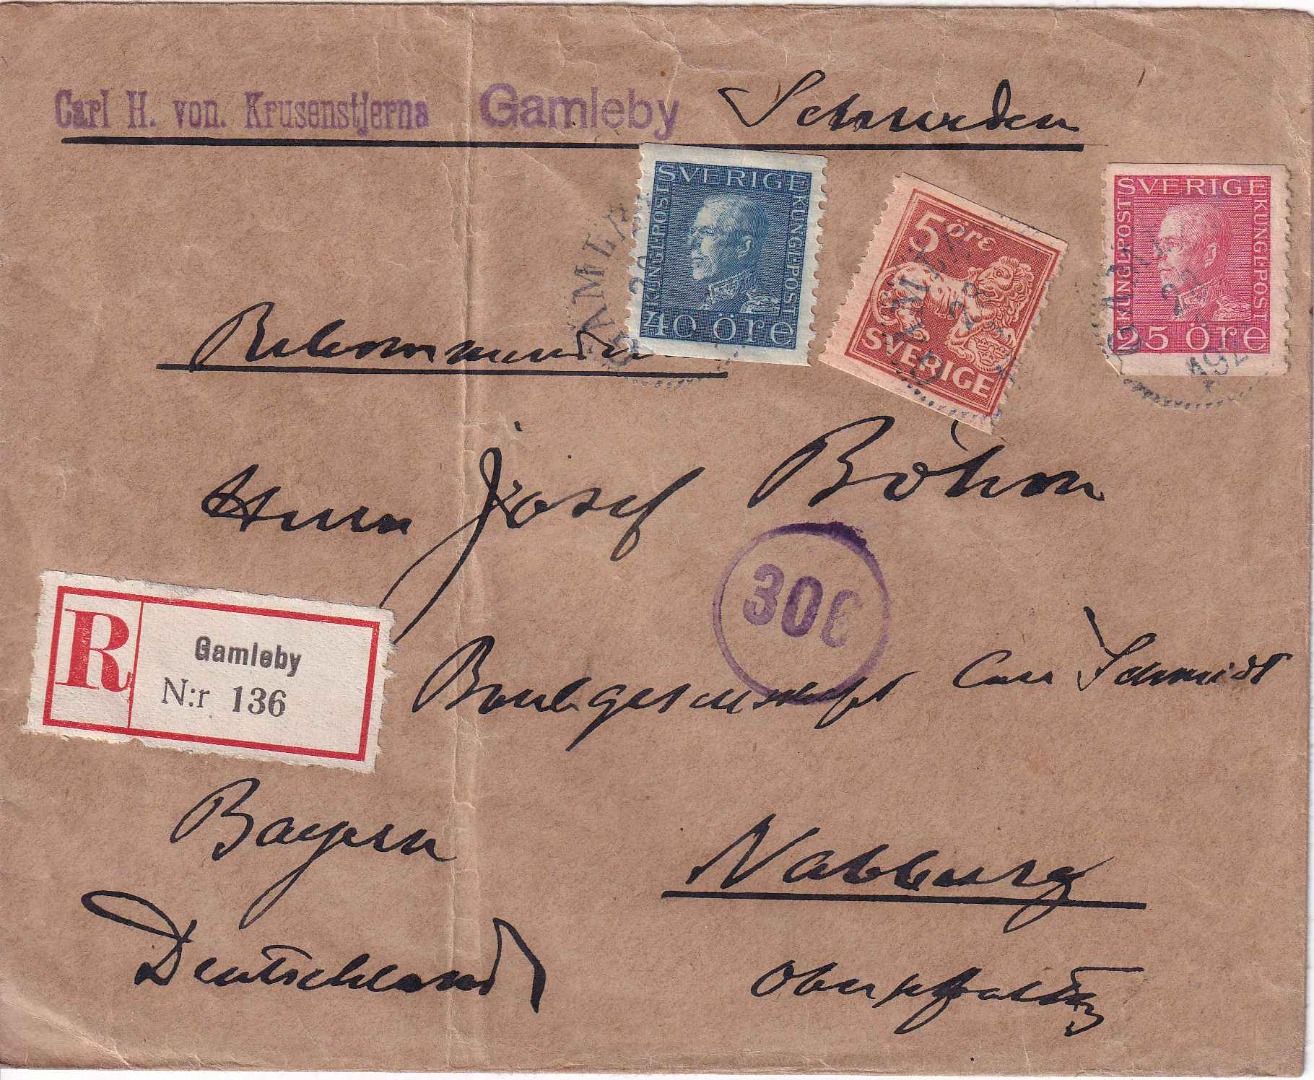 Carl H. von. Krusenstjerna Gamleby Schweden
SVERIGE
KUNGL·POST
KUNGL·POST
40 öre
5 öre
SVERIGE
SVERIGE
KUNGL·POST
KUNGL·POST
25 öre
GAMLEBY
Herrn Josef Böhm
30
R
Gamleby
N:r 136
Carl Schmidt
Bayern
Nabburg
Deutschland
Oberpfaltz